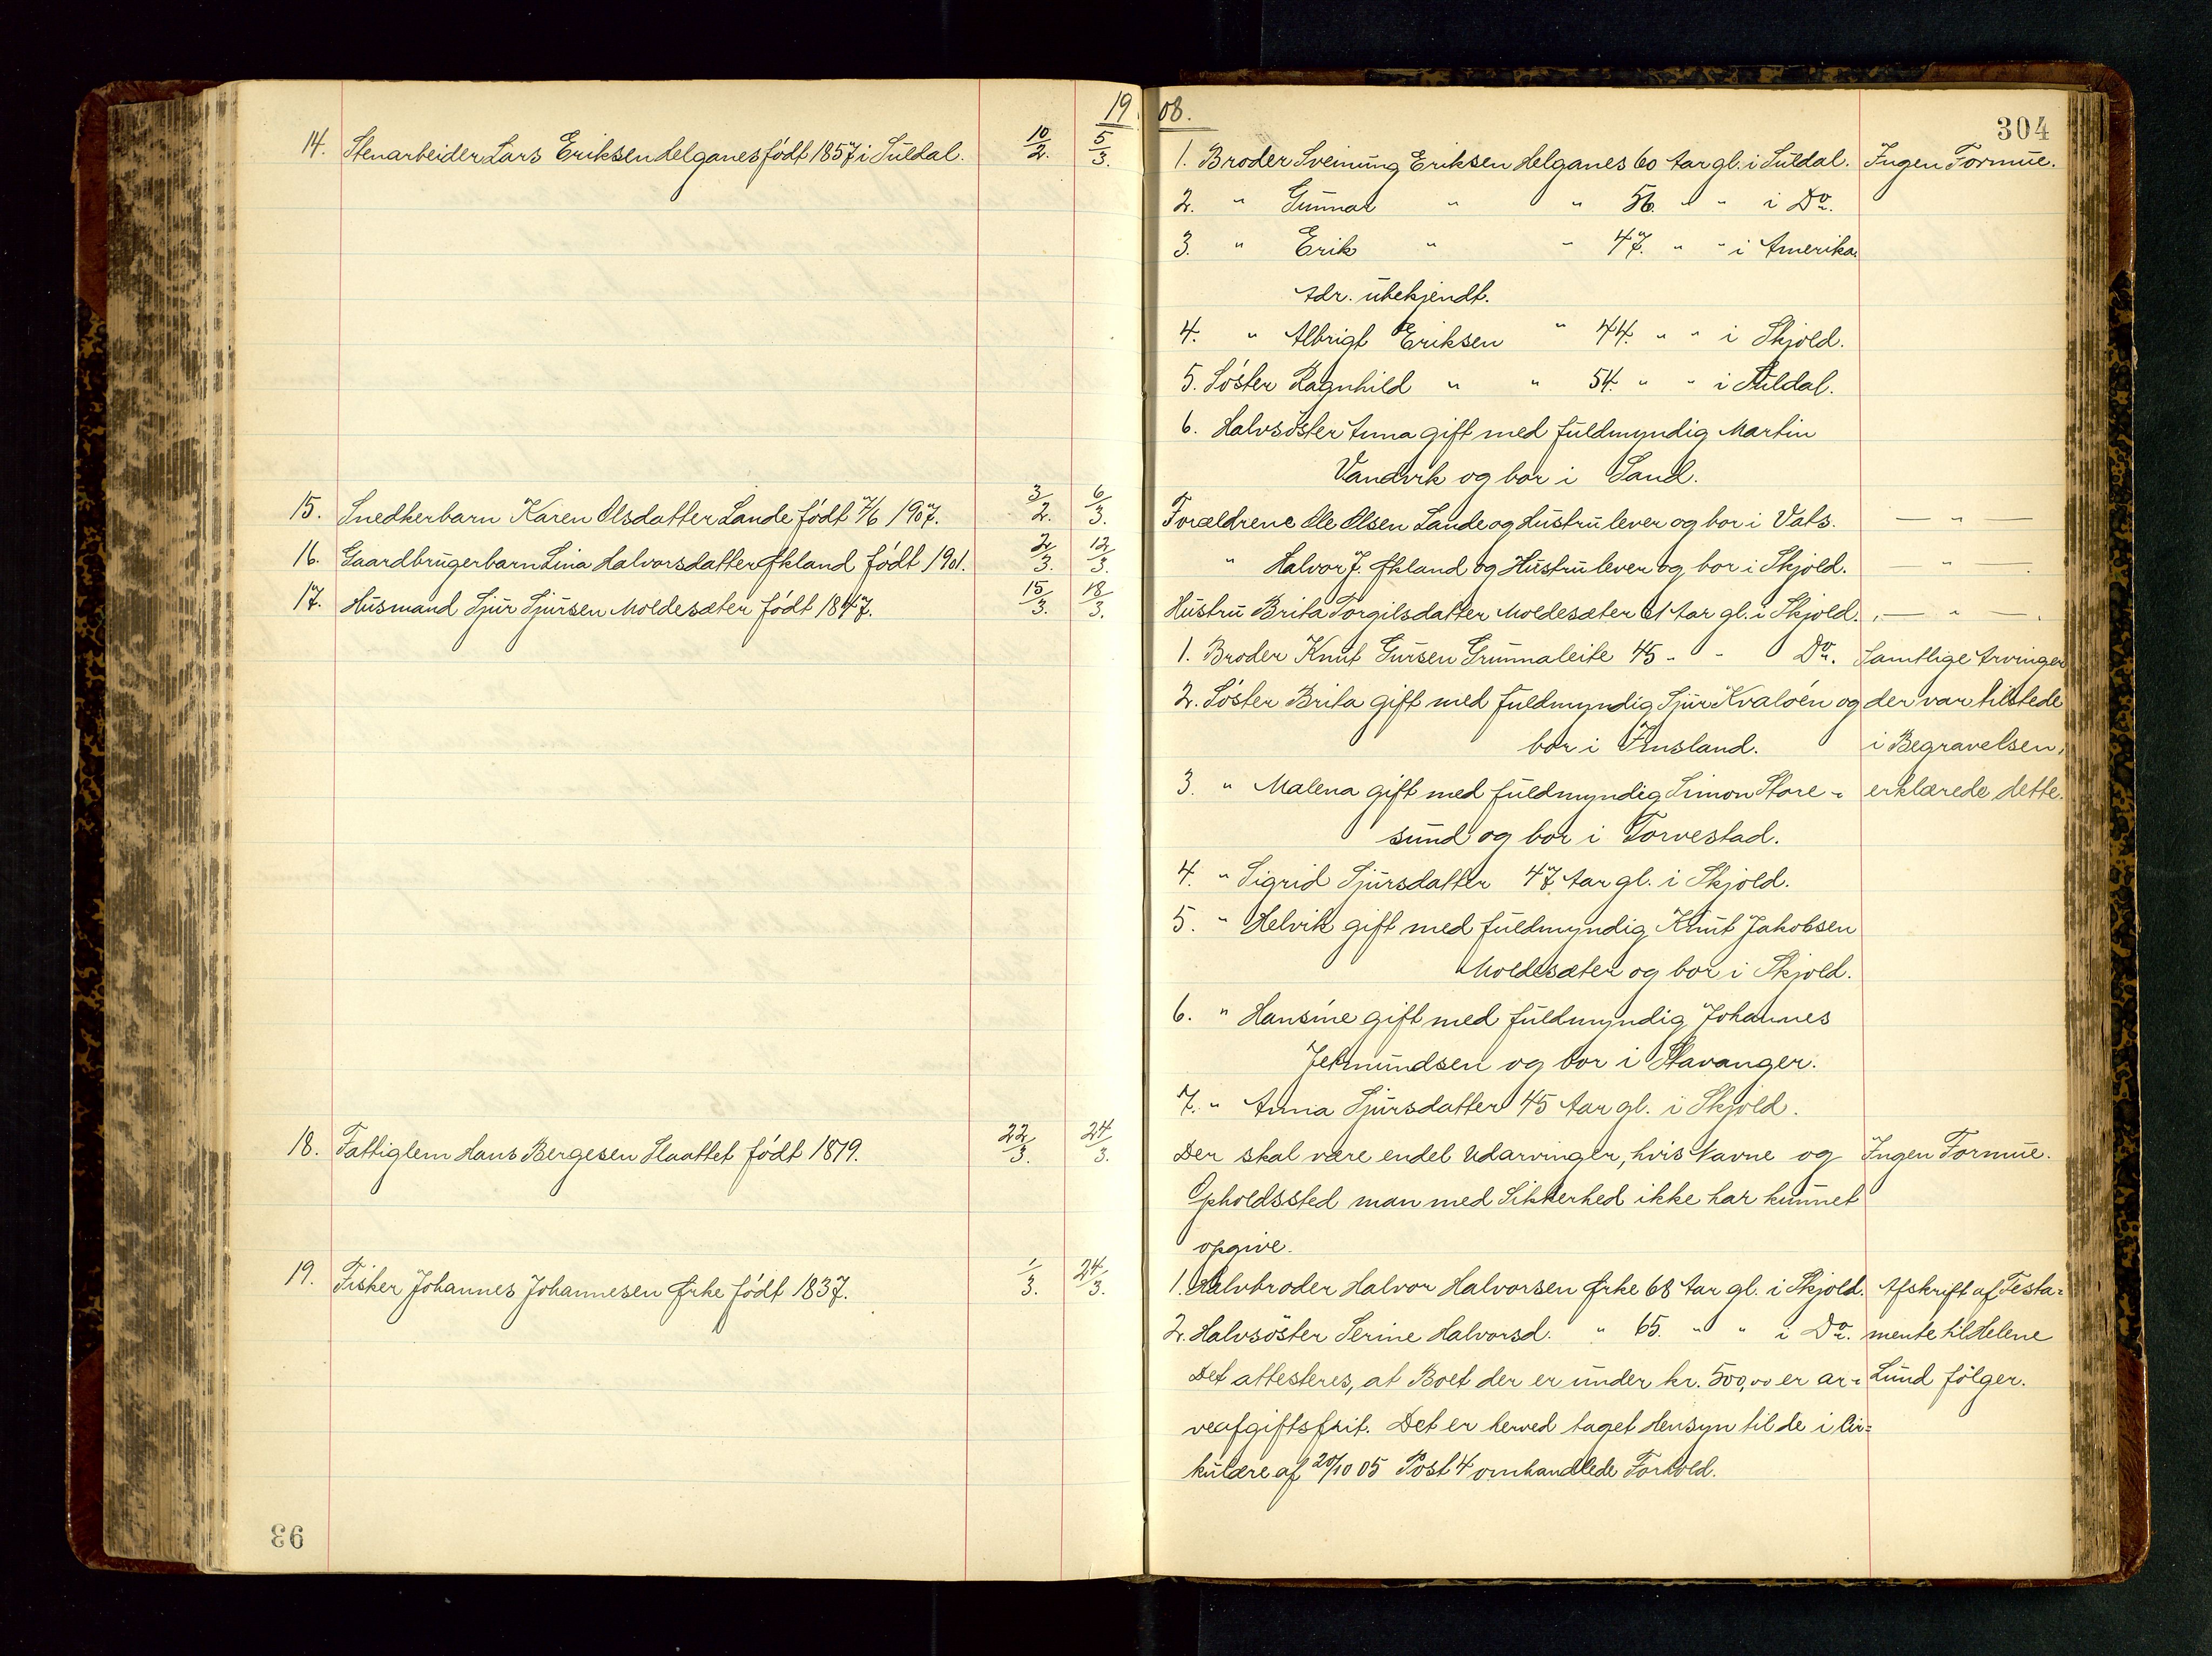 19 08.
304
14. Stenarbeider Lars Eriksen Helganes født 1857 i Suldal. 10/2. 5/3. 1. Broder Sveinung Eriksen Helganes 60 Aar gl. i Suldal. Ingen Formue.
2. " Gunnar " " 56. " " i Do.
3. " Erik " " 47. " " i Amerika
Adr. ubekjendt.
4. " Albrigt Eriksen " 44. " " i Skjold.
5. Søster Ragnhild " " 54. " " i Suldal.
6. Halvsøster Anna gift med fuldmyndig Martin
Vandvik og bor i Sand.
15. Snedkerbarn Karen Olsdatter Lande født 7/6 1907. 3/2. 6/3. Forældrene Ole Olsen Lande og Hustru lever og bor i Vats. — " —
16. Gaardbrugerbarn Lina Halvorsdatter Økland født 1901. 2/3. 12/3. " Halvor J. Økland og Hustru lever og bor i Skjold. — " —.
17. Husmand Sjur Sjursen Moldesæter født 1847. 15/3. 18/3. Hustru Brita Torgilsdatter Moldesæter 61 Aar gl. i Skjold. — " —.
1. Broder Knut Sjursen Grunnaleite 45 " " Do. Samtlige Arvinger
2. Søster Brita gift med fuldmyndig Sjur Kvaløen og der var tilstede
bor i Imsland. i Begravelsen,
3. " Malena gift med fuldmyndig Simon Store- erklærede dette.
sund og bor i Torvestad.
4. " Sigrid Sjursdatter 47 Aar gl. i Skjold.
5. " Helvik gift med fuldmyndig Knut Jakobsen
Moldesæter og bor i Skjold.
6. " Hansine gift med fuldmyndig Johannes
Jetmundsen og bor i Stavanger.
7. " Anna Sjursdatter 45 Aar gl. i Skjold.
18. Fattiglem Hans Bergesen Slaattet født 1819. 22/3. 24/3. Der skal være endel Udarvinger, hvis Navne og Ingen Formue.
Opholdssted man med Sikkerhed ikke har kunnet
opgive.
19. Fisker Johannes Johannesen Ørke født 1837. 1/3. 24/3. 1. Halvbroder Halvor Halvorsen Ørke 68 Aar gl. i Skjold. Afskrift af Testa=
2. Halvsøster Serine Halvorsd. " 65. " " i Do. mente til Helene
Det attesteres, at Boet der er under kr. 500,00 er ar= Lund følger.
veafgiftsfrit. Det er herved taget Hensyn til de i Cir=
kulære af 20/10 05 Post 4 omhandlede Forhold.
93